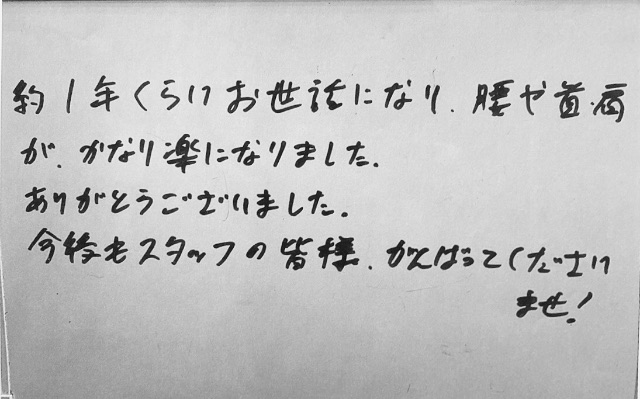 約1年くらいお世話になり、腰や首・肩
が、かなり楽になりました。
ありがとうございました。
今後もスタッフの皆様、がんばってくださいませ!